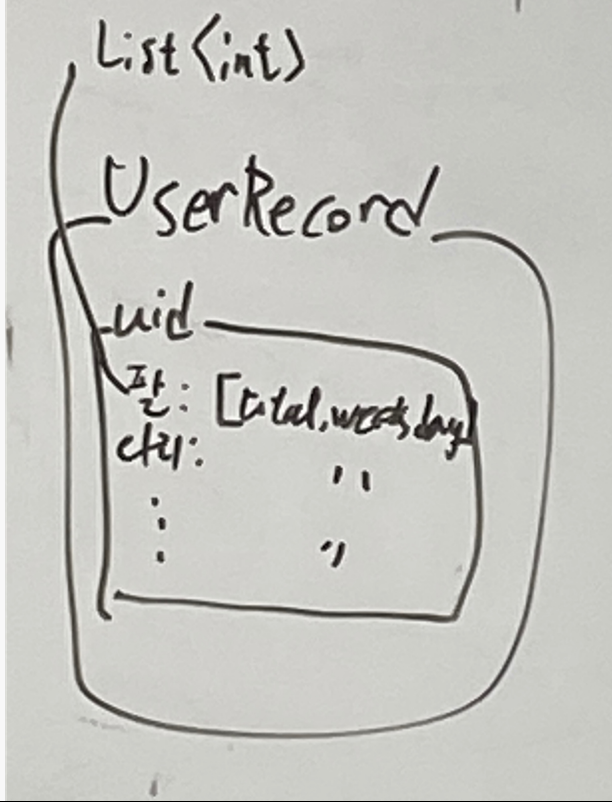 List<int>
UserRecord
uid
팔: [total, week, day]
다리: "
: "